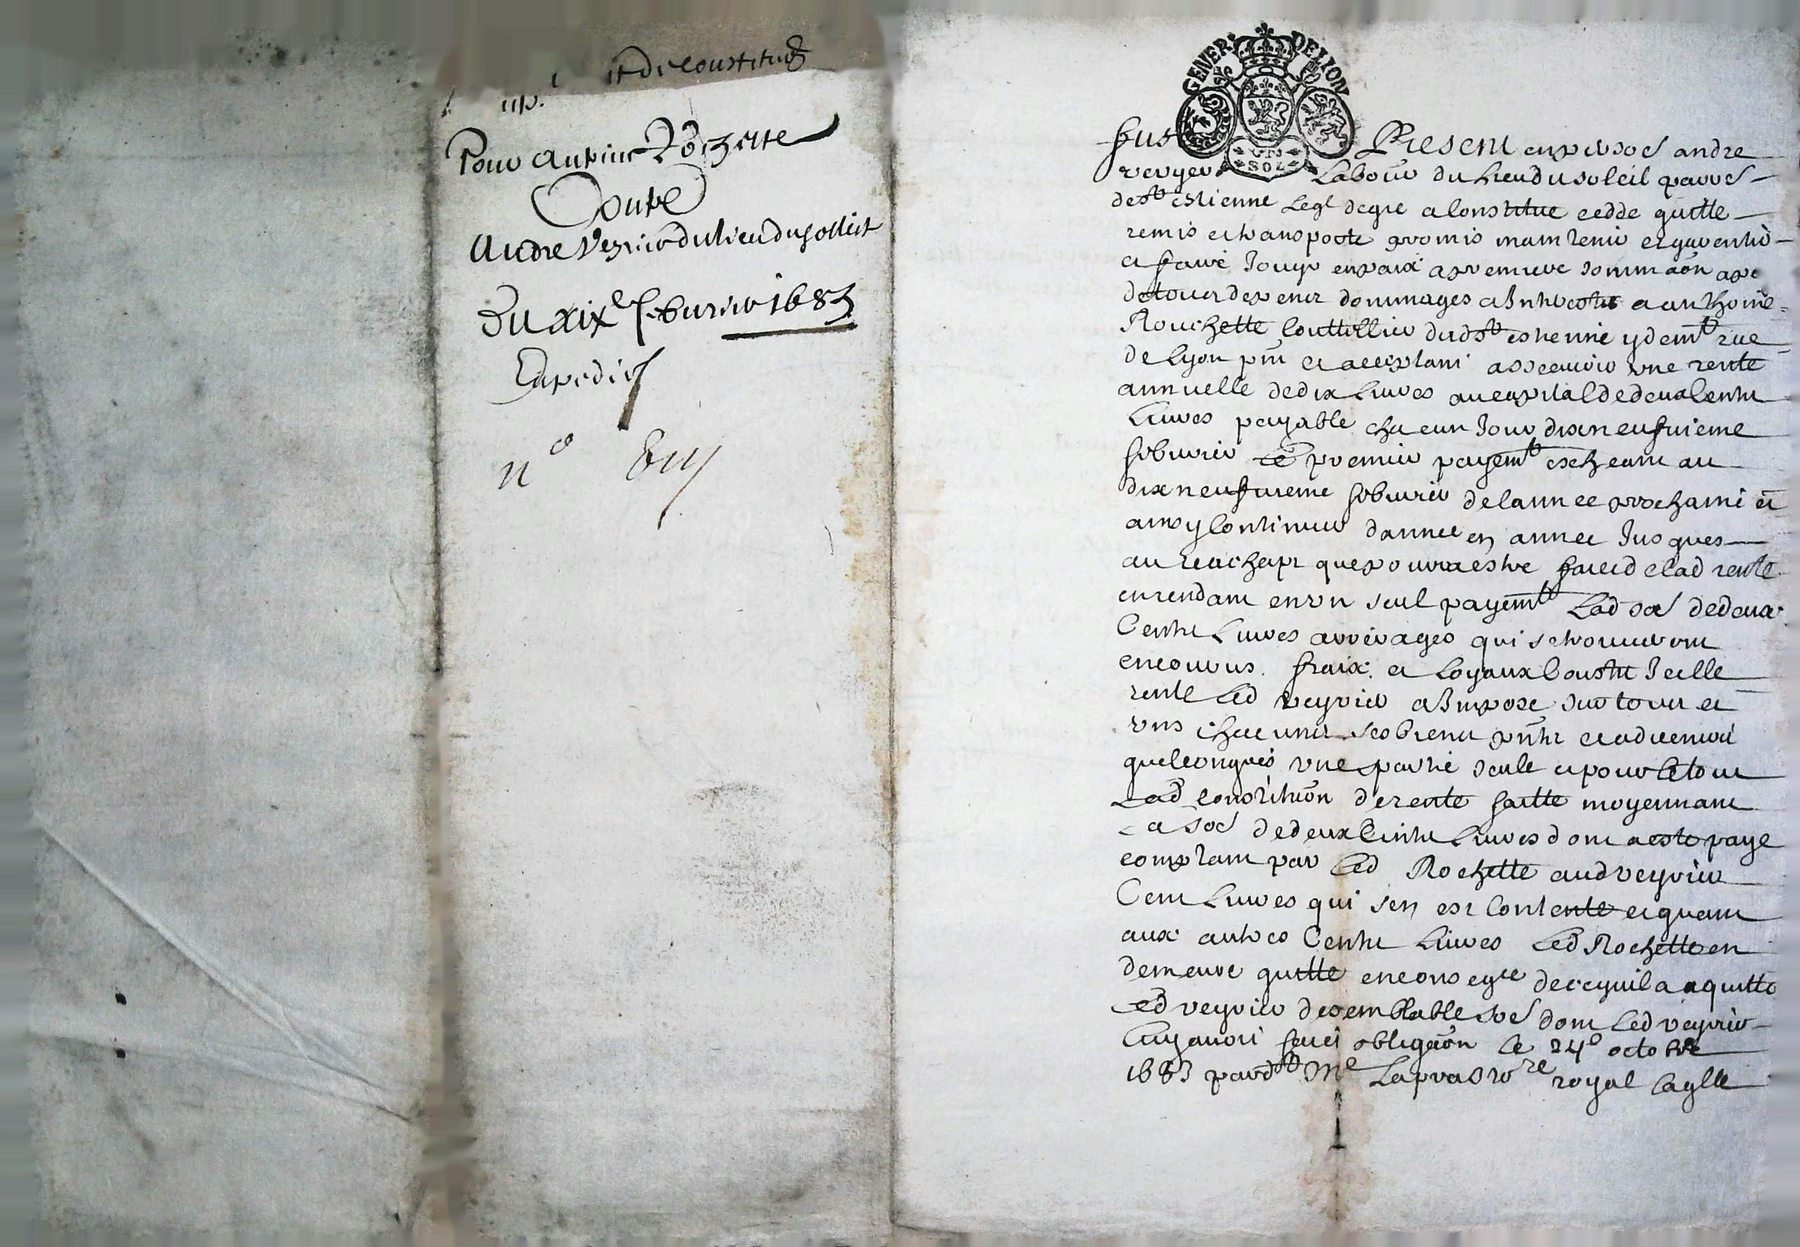 it de constituõn
Pour Antoine Rochette
Contre
Andre Veyrier du lieu du solleil
Du xix.e febvrier 1685
Expedié
n.o
GENER. DE LION
UN
SOL
Fust Present en personne andre
veyrier Labour du lieu du soleil parroe
de St estienne Leql de gre a Constitue cedde quitte
remis et transporte promis maintenir et garentir
et faire Jouyr en paix a premiere sommaon a pe
de tous despens dommages et Intherestz a anthoine
Rouchette Couttellier dudt St estienne y demt rue
de Lyon pnt et acceptant assavoir une rente
annuelle de dix Livres au capital de deux Centz
Livres payable chacun Jour dixneufvieme
febvrier le premier payemt escheant au
dixneufvieme febvrier de lannee prochaine et
ainsy Continuer dannee en annee Jusques
au reachapt que pourra estre faict de lad rente
en rendant en un seul payemt Lad soe de deux
Centz Livres arrerages qui se trouveront
encourus fraix et Loyaux Coustz Icelle
rente Led veyrier a Impose sur tous et
uns chacuns ses biens pntz et advenir
quelconques une partie seule et pour le tout
Lad constitution de rente faitte moyennant
La soe de deux Centz Livres dont a este paye
comptant par Led Rochette aud veyrier
Cent Livres qui sen est Contente et quant
aux autres Centz Livres Led Rochette en
demeure quitte en conseqce de ce quil a aquitte
Led veyrier de semblable soe dont Led veyrier
Luy avoit faict obligaon le 24e octobre
1683 pardt Me royal Laqlle